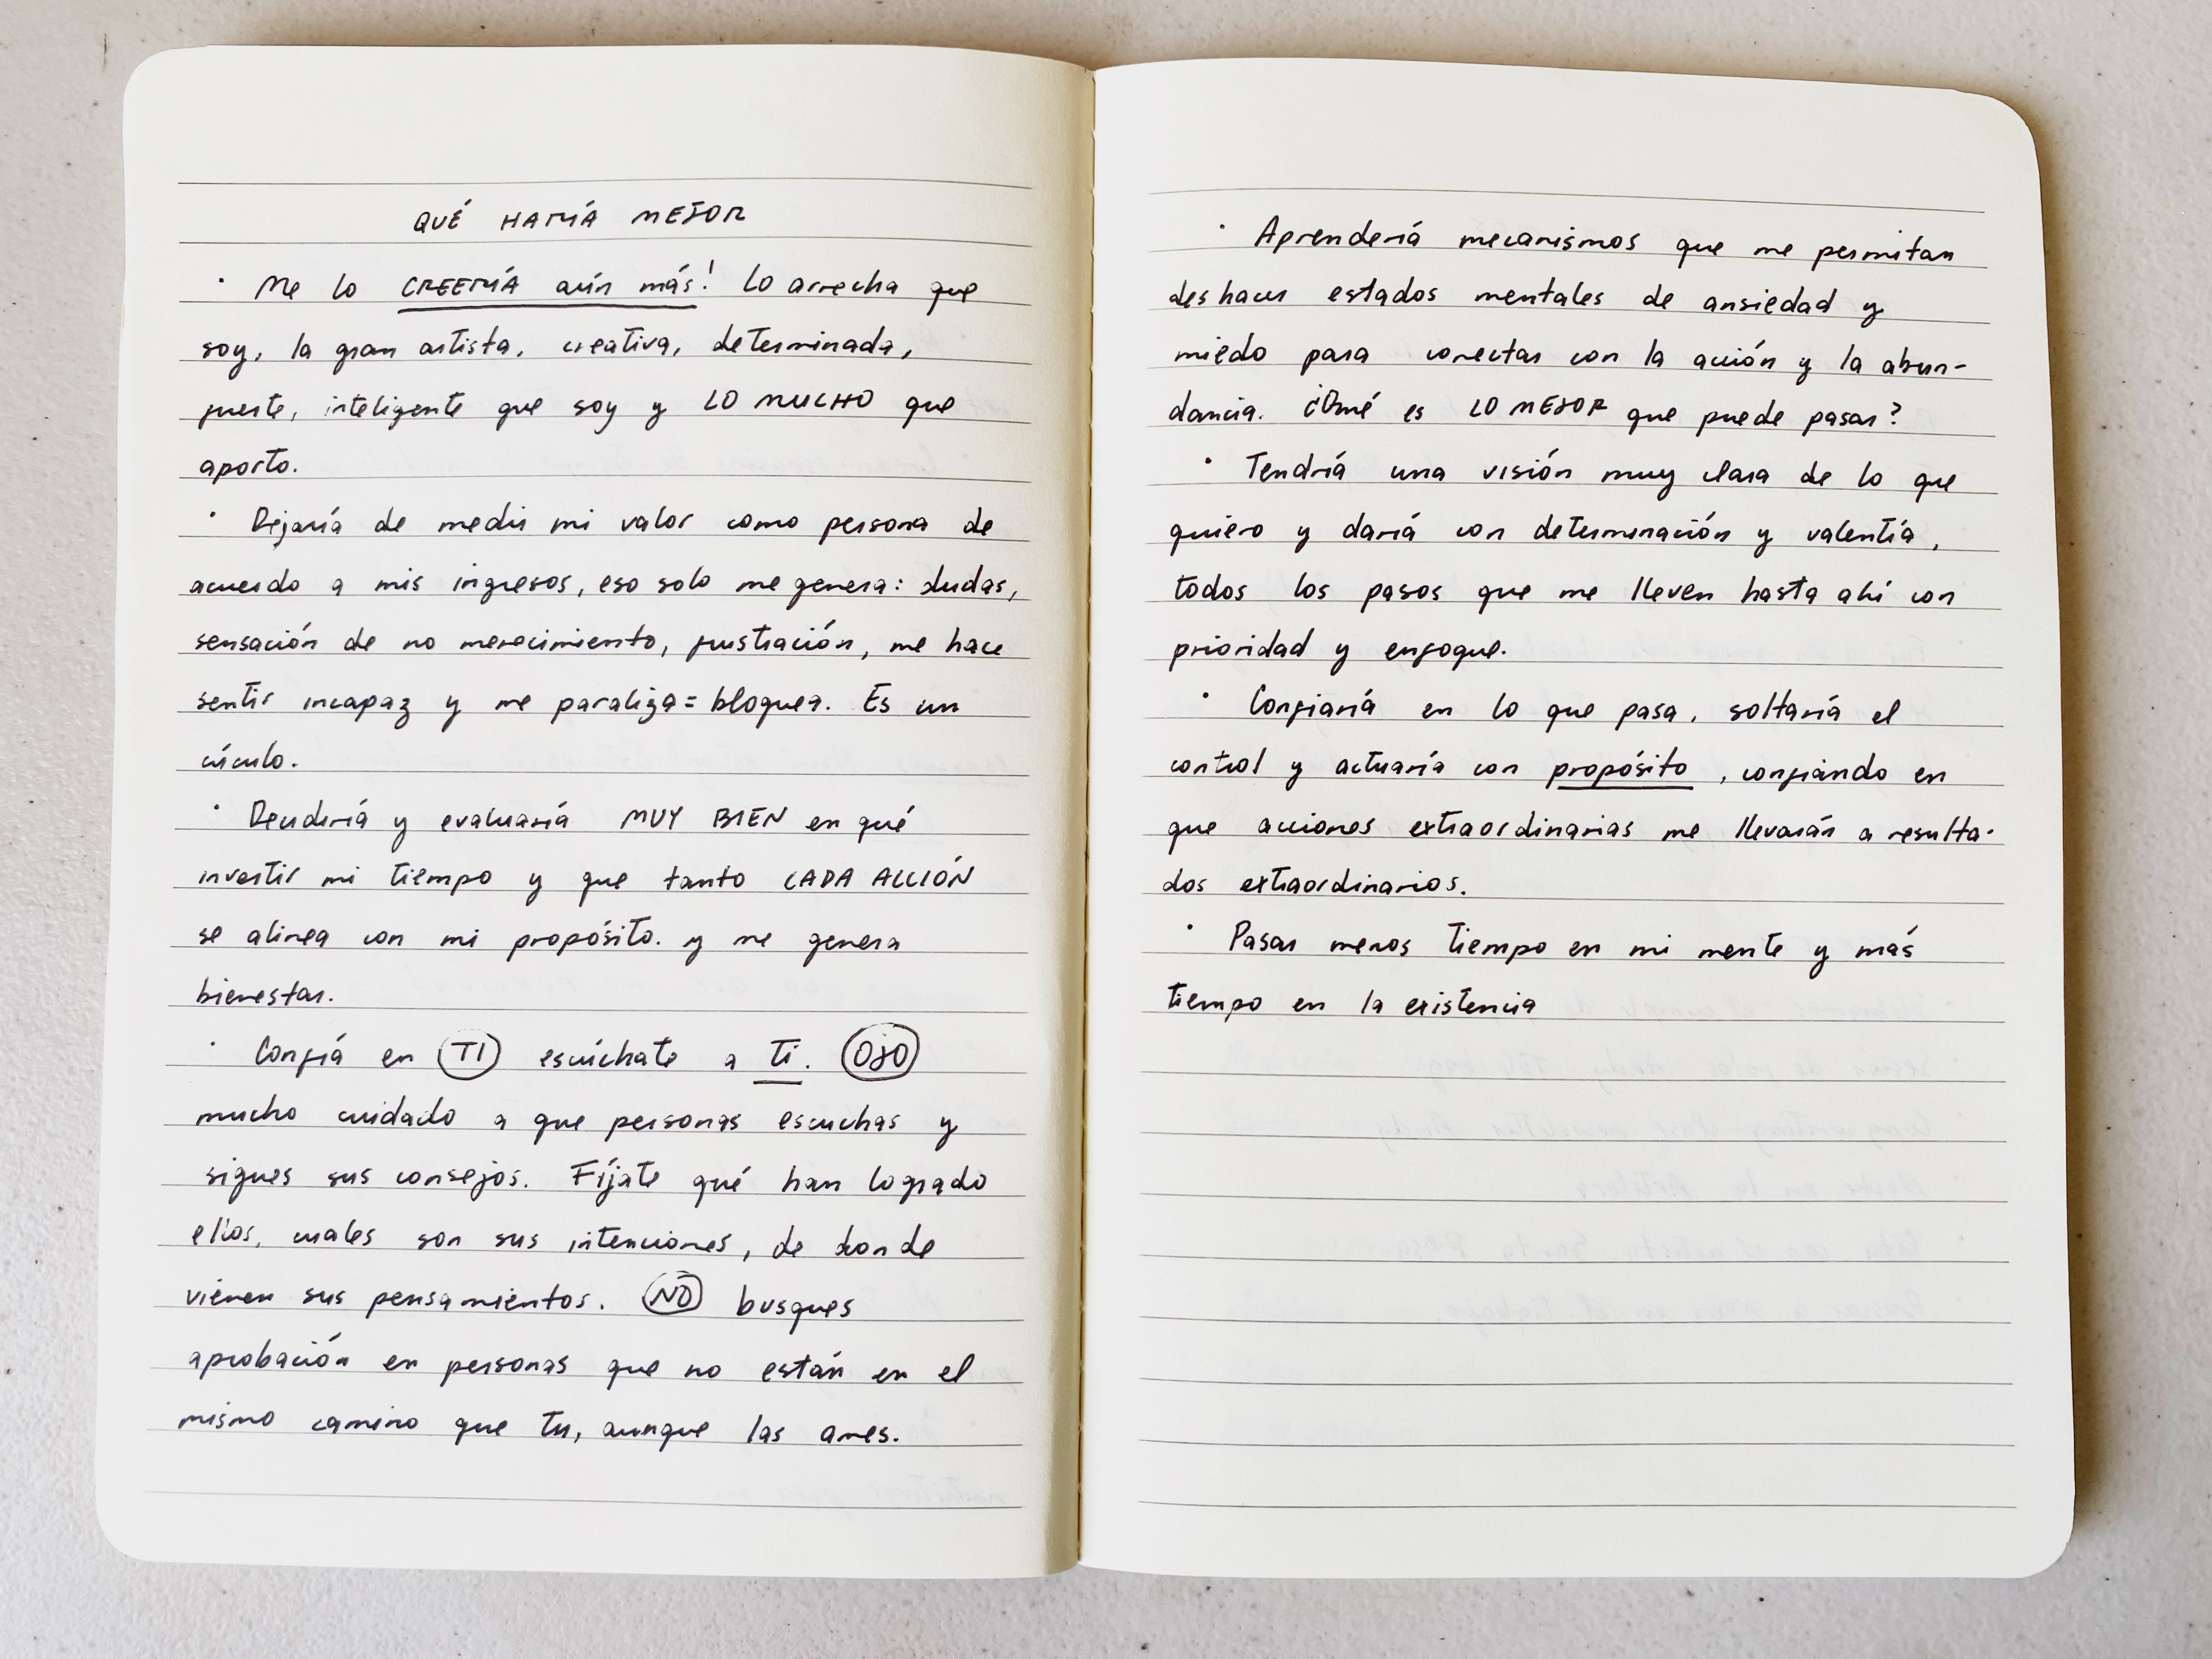 QUÉ HARÍA MEJOR
· Me lo CREERÍA aún más! Lo arrecha que
soy, la gran artista, creativa, determinada,
fuerte, inteligente que soy y LO MUCHO que
aporto.
· Dejaría de medir mi valor como persona de
acuerdo a mis ingresos, eso solo me genera: dudas,
sensación de no merecimiento, frustración, me hace
sentir incapaz y me paraliza = bloquea. Es un
círculo.
· Decidiría y evaluaría MUY BIEN en qué
invertir mi tiempo y que tanto CADA ACCIÓN
se alinea con mi propósito. y me genera
bienestar.
· Confiá en TI escúchate a ti. OJO
mucho cuidado a que personas escuchas y
sigues sus consejos. Fíjate qué han logrado
ellos, cuales son sus intenciones, de donde
vienen sus pensamientos. NO busques
aprobación en personas que no están en el
mismo camino que tu, aunque las ames.
· Aprendería mecanismos que me permitan
deshacer estados mentales de ansiedad y
miedo para conectar con la acción y la abun-
dancia. ¿Qué es LO MEJOR que puede pasar?
· Tendría una visión muy clara de lo que
quiero y daría con determinación y valentía,
todos los pasos que me lleven hasta ahí con
prioridad y enfoque.
· Confiaría en lo que pasa, soltaría el
control y actuaría con propósito, confiando en
que acciones extraordinarias me llevarán a resulta-
dos extraordinarios.
· Pasar menos tiempo en mi mente y más
tiempo en la existencia